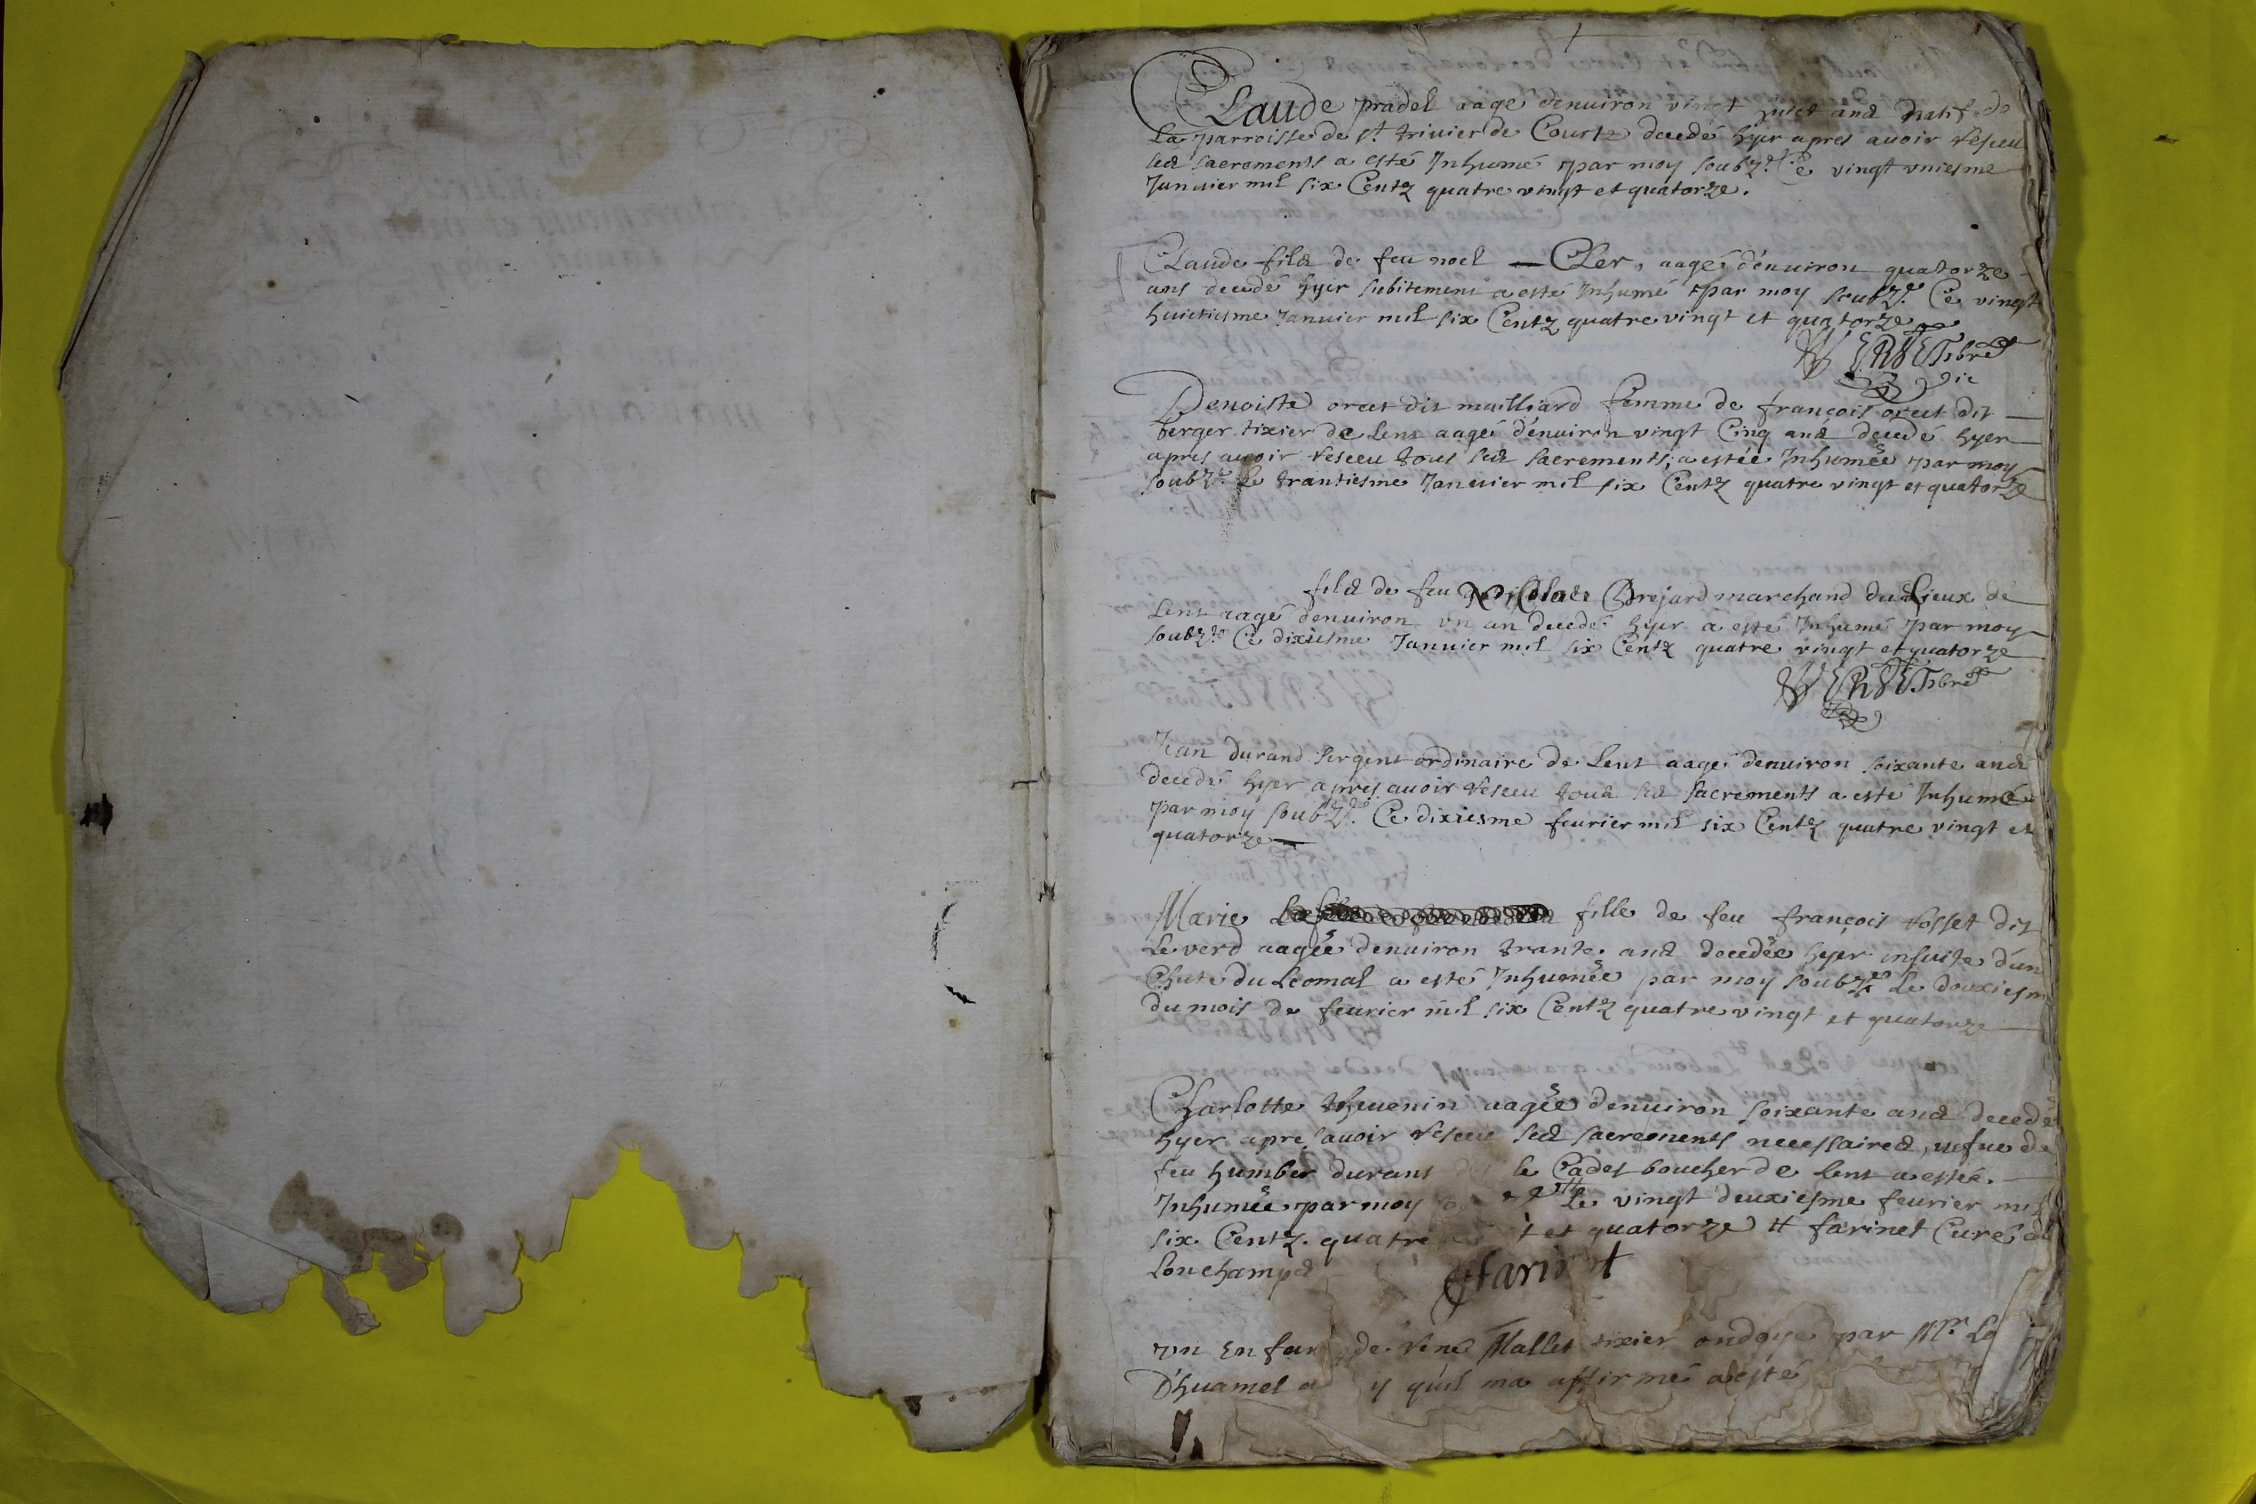 Claude pradel aagé denuiron vingt huict ans natif de
La parroisse de st. triuier de Courte decedé hyer apres auoir reseu
les sacrements a esté Inhumé par moy soubz.é Ce vingt vniesme
Januier mil six Centz quatre vingt et quatorze.
Claude fils de feu noel — Cler, aagé d'enuiron quatorze
ans decedé hyer subitement a esté Inhumé par moy soubz.é Ce vingt
huictiesme Januier mil six Centz quatre vingt et quatorze
VERSET pbre
Vic
Benoiste orcet dit mailliard femme de françois orcet dit
berger tixier de lent aagé d'enuiron vingt Cinq ans decedé hyer
apres auoir reseeu tous les sacrements, a estée Inhumée par moy
soubz.é Le trantiesme Januier mil six Centz quatre vingt et quatorze
fils de feu Nicolas Brejard marchand du Lieux de
Lent aagé denuiron vn an decedé hyer a esté Inhumé par moy
soubz.é Ce dixiesme Januier mil six Centz quatre vingt et quatorze
VERSET pbre
Jean durand sergent ordinaire de Lent aagé denuiron soixante ans
decedé hyer apres auoir reseeu tous les sacrements a esté Inhumé
par moy soubz.é Ce dixiesme feurier mil six Centz quatre vingt et
quatorze —
Marie fille de feu françois rosset dit
Le verd aagée denuiron trante ans decedée hyer insuite d'un
Chute du Leomal a esté Inhumée par moy soubz.é Le douxiesm
du mois de feurier mil six Centz quatre vingt et quatorze
Charlotte theuenin aagée denuiron soixante ans decedé
hyer apres auoir reseeu les sacrements necessaires, vefue de
feu humber durant le Cadet boucher de lent a estée
Inhumée par moy Le vingt deuxiesme feurier mil
six Centz quatre et quatorze H farinet Curé de
Lonchamps
Hfarinet
vn Enfan de René Mallet tixier ondoyé par Mr. Le
D'huamel a y qu'il ma affirmé a esté